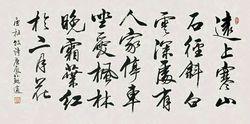 遠上寒山
石徑斜白
雲深處有
人家停車
坐愛楓林
晚霜葉紅
於二月花
杜牧詩